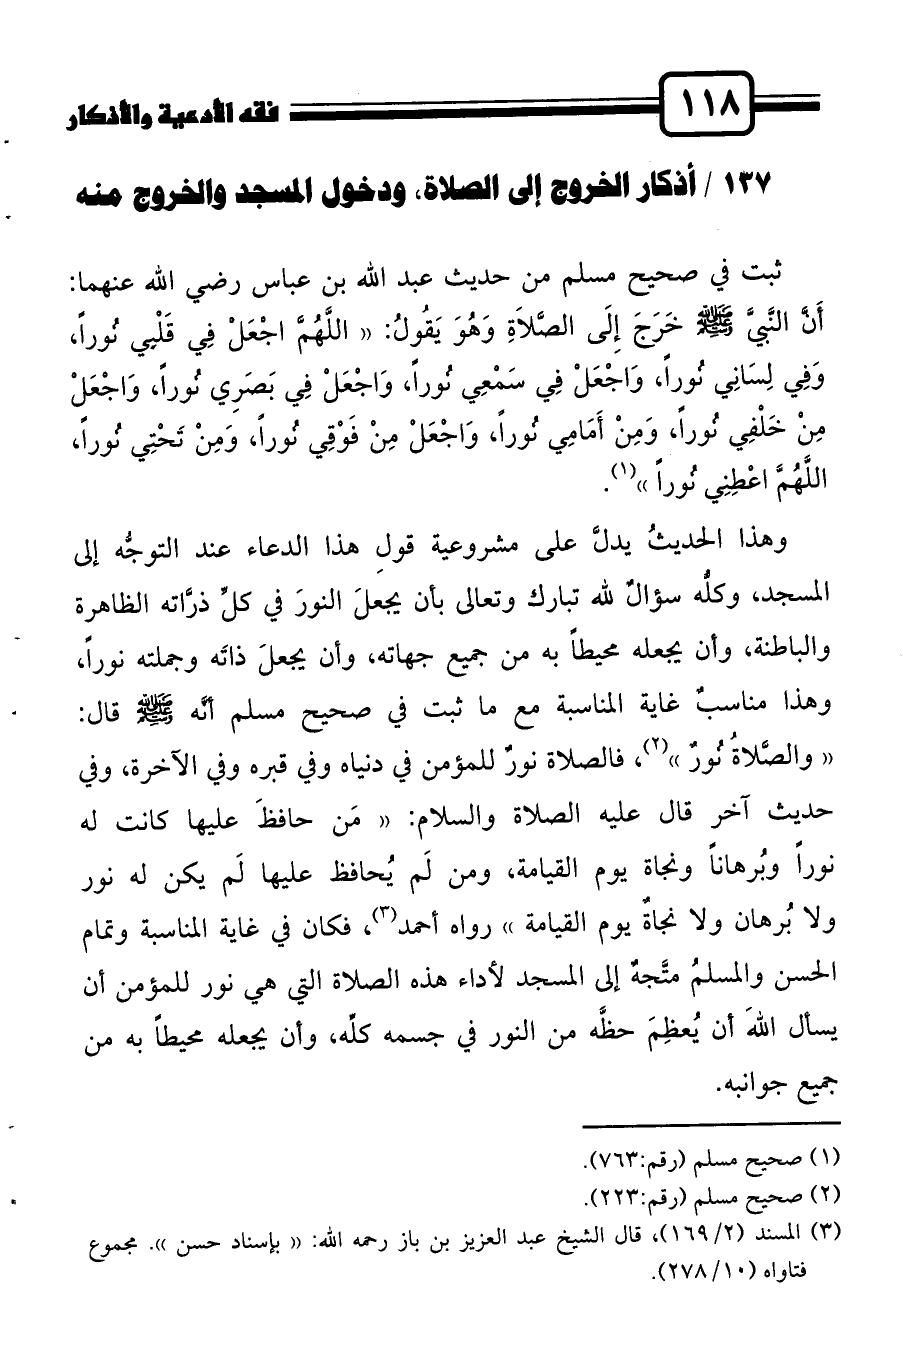 ١١٨ فقه الأدعية والأذكار
١٣٧ / أذكار الخروج إلى الصلاة، ودخول المسجد والخروج منه
ثبت في صحيح مسلم من حديث عبد الله بن عباس رضي الله عنهما:
أَنَّ النَّبِيَّ ﷺ خَرَجَ إِلَى الصَّلاَةِ وَهُوَ يَقُولُ: « اللَّهُمَّ اجْعَلْ فِي قَلْبِي نُوراً،
وَفِي لِسَانِي نُوراً، وَاجْعَلْ فِي سَمْعِي نُوراً، وَاجْعَلْ فِي بَصَرِي نُوراً، وَاجْعَلْ
مِنْ خَلْفِي نُوراً، وَمِنْ أَمَامِي نُوراً، وَاجْعَلْ مِنْ فَوْقِي نُوراً، وَمِنْ تَحْتِي نُوراً،
اللَّهُمَّ اعْطِنِي نُوراً »(١).
وهذا الحديثُ يدلَّ على مشروعية قولِ هذا الدعاء عند التوجُّه إلى
المسجد، وكلُّه سؤالٌ لله تبارك وتعالى بأن يجعلَ النورَ في كلِّ ذرَّاته الظاهرة
والباطنة، وأن يجعله محيطاً به من جميع جهاته، وأن يجعلَ ذاتَه وجملته نوراً،
وهذا مناسبٌ غاية المناسبة مع ما ثبت في صحيح مسلم أنَّه ﷺ قال:
« والصَّلاةُ نُورٌ »(٢)، فالصلاة نورٌ للمؤمن في دنياه وفي قبره وفي الآخرة، وفي
حديث آخر قال عليه الصلاة والسلام: « مَن حافظَ عليها كانت له
نوراً وبُرهاناً ونجاة يوم القيامة، ومن لَم يُحافظ عليها لَم يكن له نور
ولا بُرهان ولا نجاةٌ يوم القيامة » رواه أحمد(٣)، فكان في غاية المناسبة وتمام
الحسن والمسلمُ متَّجهٌ إلى المسجد لأداء هذه الصلاة التي هي نور للمؤمن أن
يسأل اللهَ أن يُعظِمَ حظَّه من النور في جسمه كلِّه، وأن يجعله محيطاً به من
جميع جوانبه.
(١) صحيح مسلم (رقم:٧٦٣).
(٢) صحيح مسلم (رقم:٢٢٣).
(٣) المسند (١٦٩/٢)، قال الشيخ عبد العزيز بن باز رحمه الله: « بإسناد حسن ». مجموع
فتاواه (٢٧٨/١٠).